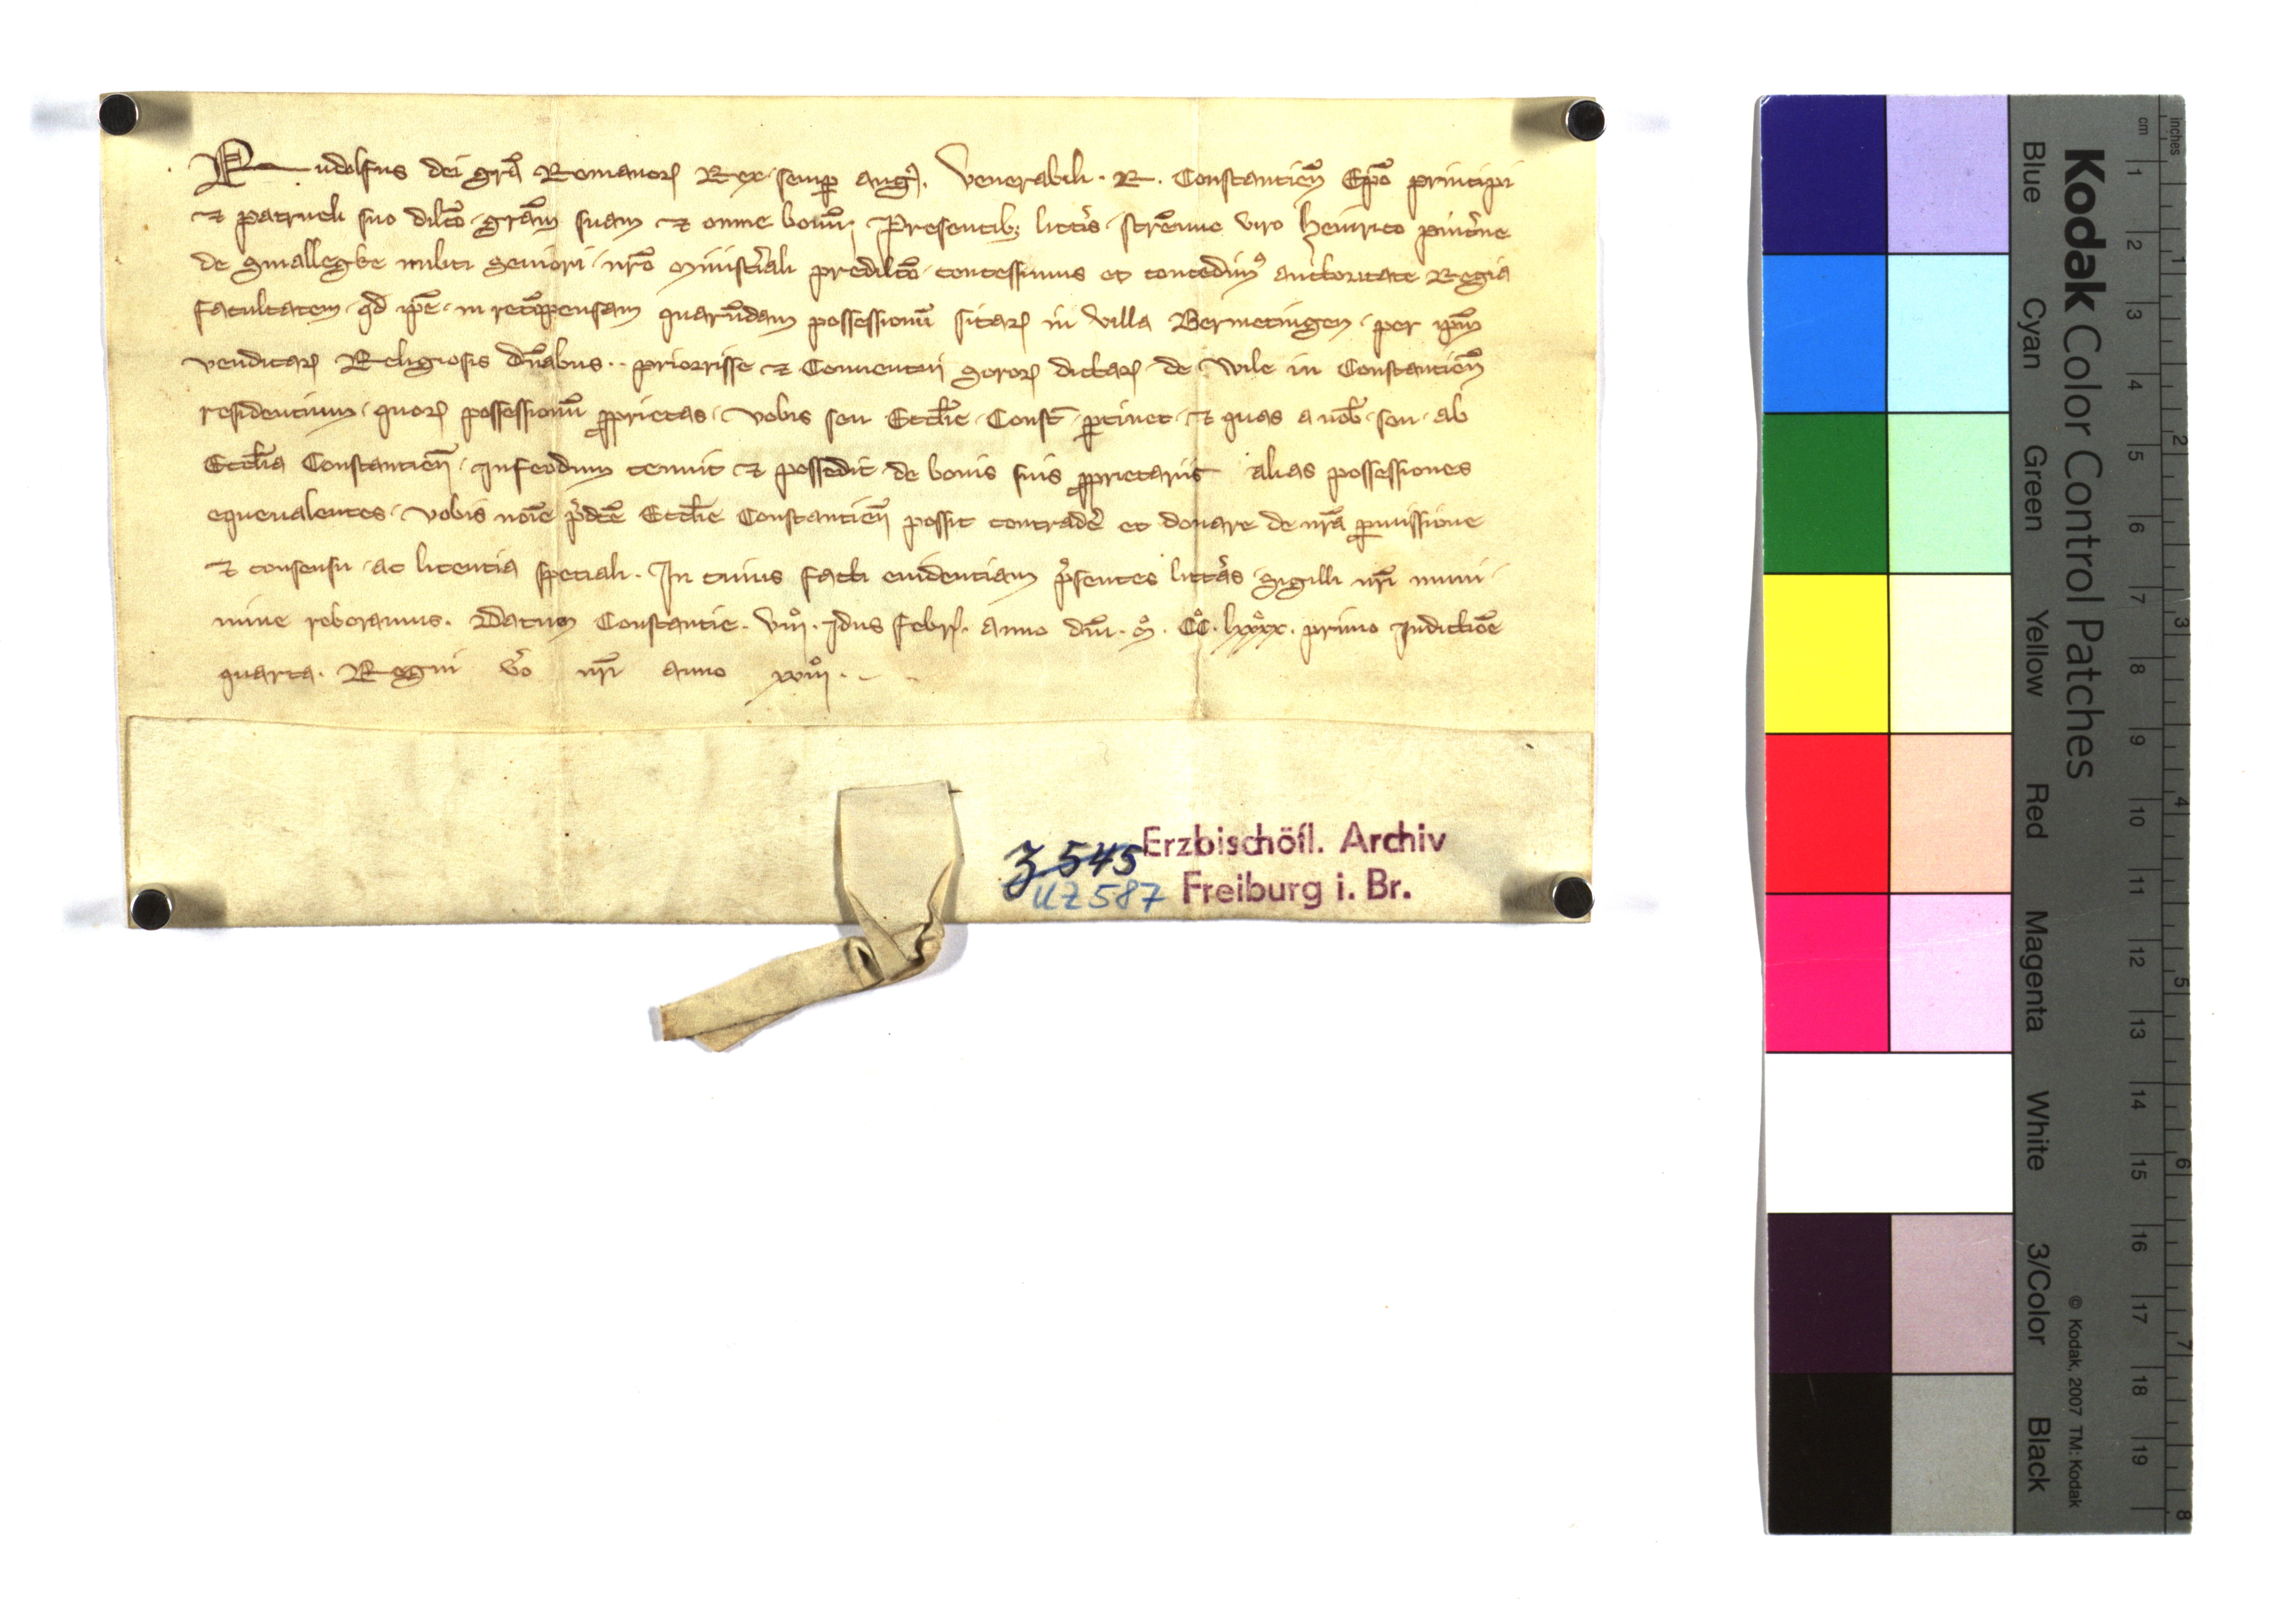 Rudolfus dei grā Romanoꝝ Rex semꝑ augꝰ. Venerabili . R. Constantieñ Ep̄o principi
⁊ patrueli suo dilc̄o grām suam ⁊ omne bonū. Presentibꝫ litt̾is strēnuo viro Heinrico pinc̾ne
de Smallegke militi seniori nr̄o minist̾iali predilc̄o concessimus et concedimꝰ auctoritate Regia
facultatem qd ip̄e in recōpensam quarūdam possessionū sitaꝝ in villa Bermetingen per ip̄m
venditaꝝ Religiosis dn̄abus .. priorisse ⁊ Conuentui soroꝝ dictaꝝ de Wile in Constantieñ
residentium quoꝝ possessionū ꝓprietas vobis seu Eccl̄ie Const̄ ꝑtinet ⁊ quas a nob̄ seu ab
Eccl̄ia Constantieñ infeodum tenuit ⁊ possedit de bonis suis ꝓprietariis alias possessiones
equeualentes vobis noīe p̾dc̄e Eccl̄ie Constantieñ possit contrade̾ et donare de nr̄a ꝑmissione
⁊ consensu ac licentia speciali. In cuius facti euidentiam p̾sentes litt̾as sigilli nr̄i muni
mine roboramus. Datum Constantie. viijͦ. Idus Febrꝭ. anno dn̄i. mͦ. CCͦ. lxxxxͦ. primo Indictiōe
quarta. Regni v̾o nr̄i anno xviijͦ.
Z 545 Erzbischöfl. Archiv
UZ 587 Freiburg i. Br.
Kodak Color Control Patches
© Kodak, 2007 TM: Kodak
Blue Cyan Green Yellow Red Magenta White 3/Color Black
cm 1 2 3 4 5 6 7 8 9 10 11 12 13 14 15 16 17 18 19
inches 1 2 3 4 5 6 7 8